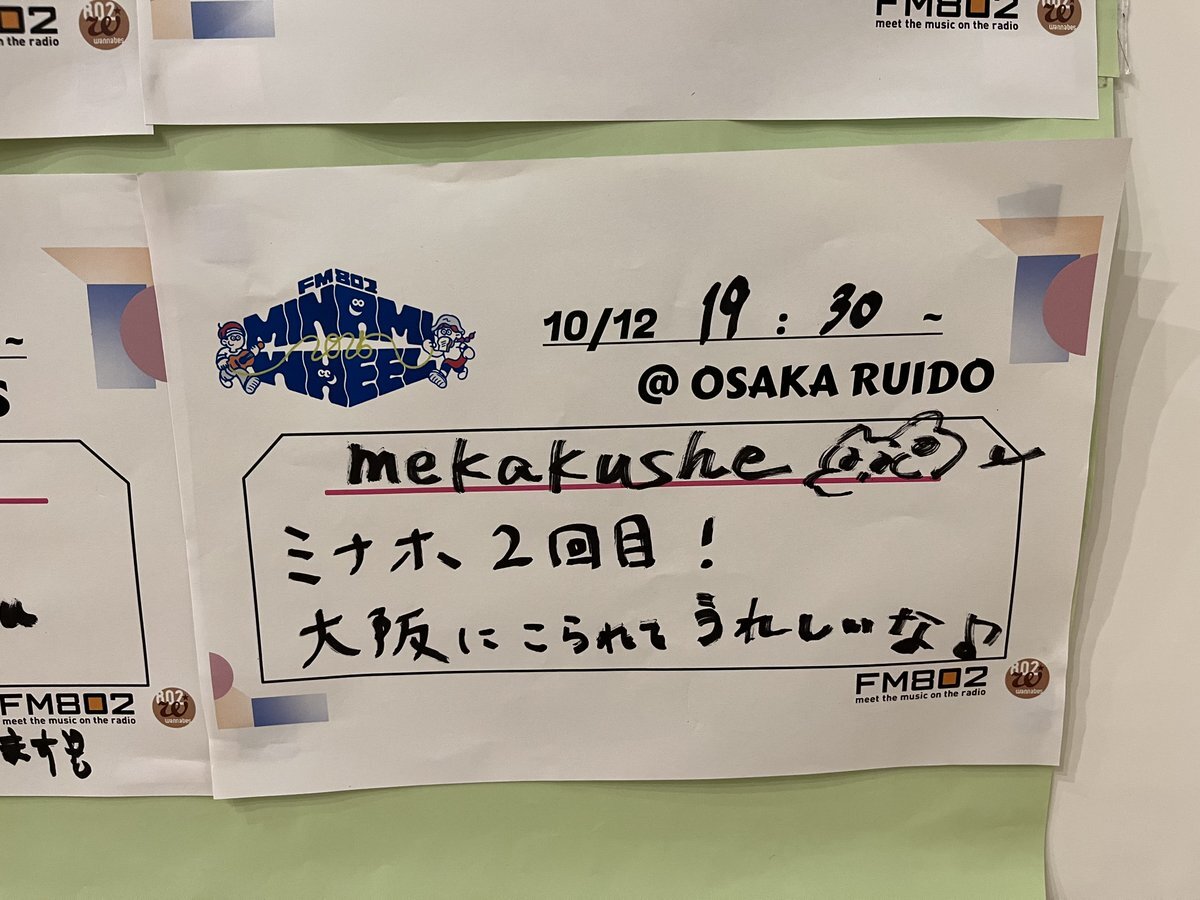 802
n the radio
wannabes
FM802
meet the music on the radio
802
wannabes
FM802
MINAMI
2025
WHEEL
10/12 19:30~
@ OSAKA RUIDO
mekakushe
ミナホ 2回目!
大阪にこられてうれしいな♪
FM802
meet the music on the radio
802
wannabes
~
S
FM802
meet the music on the radio
802
wannabes
ます